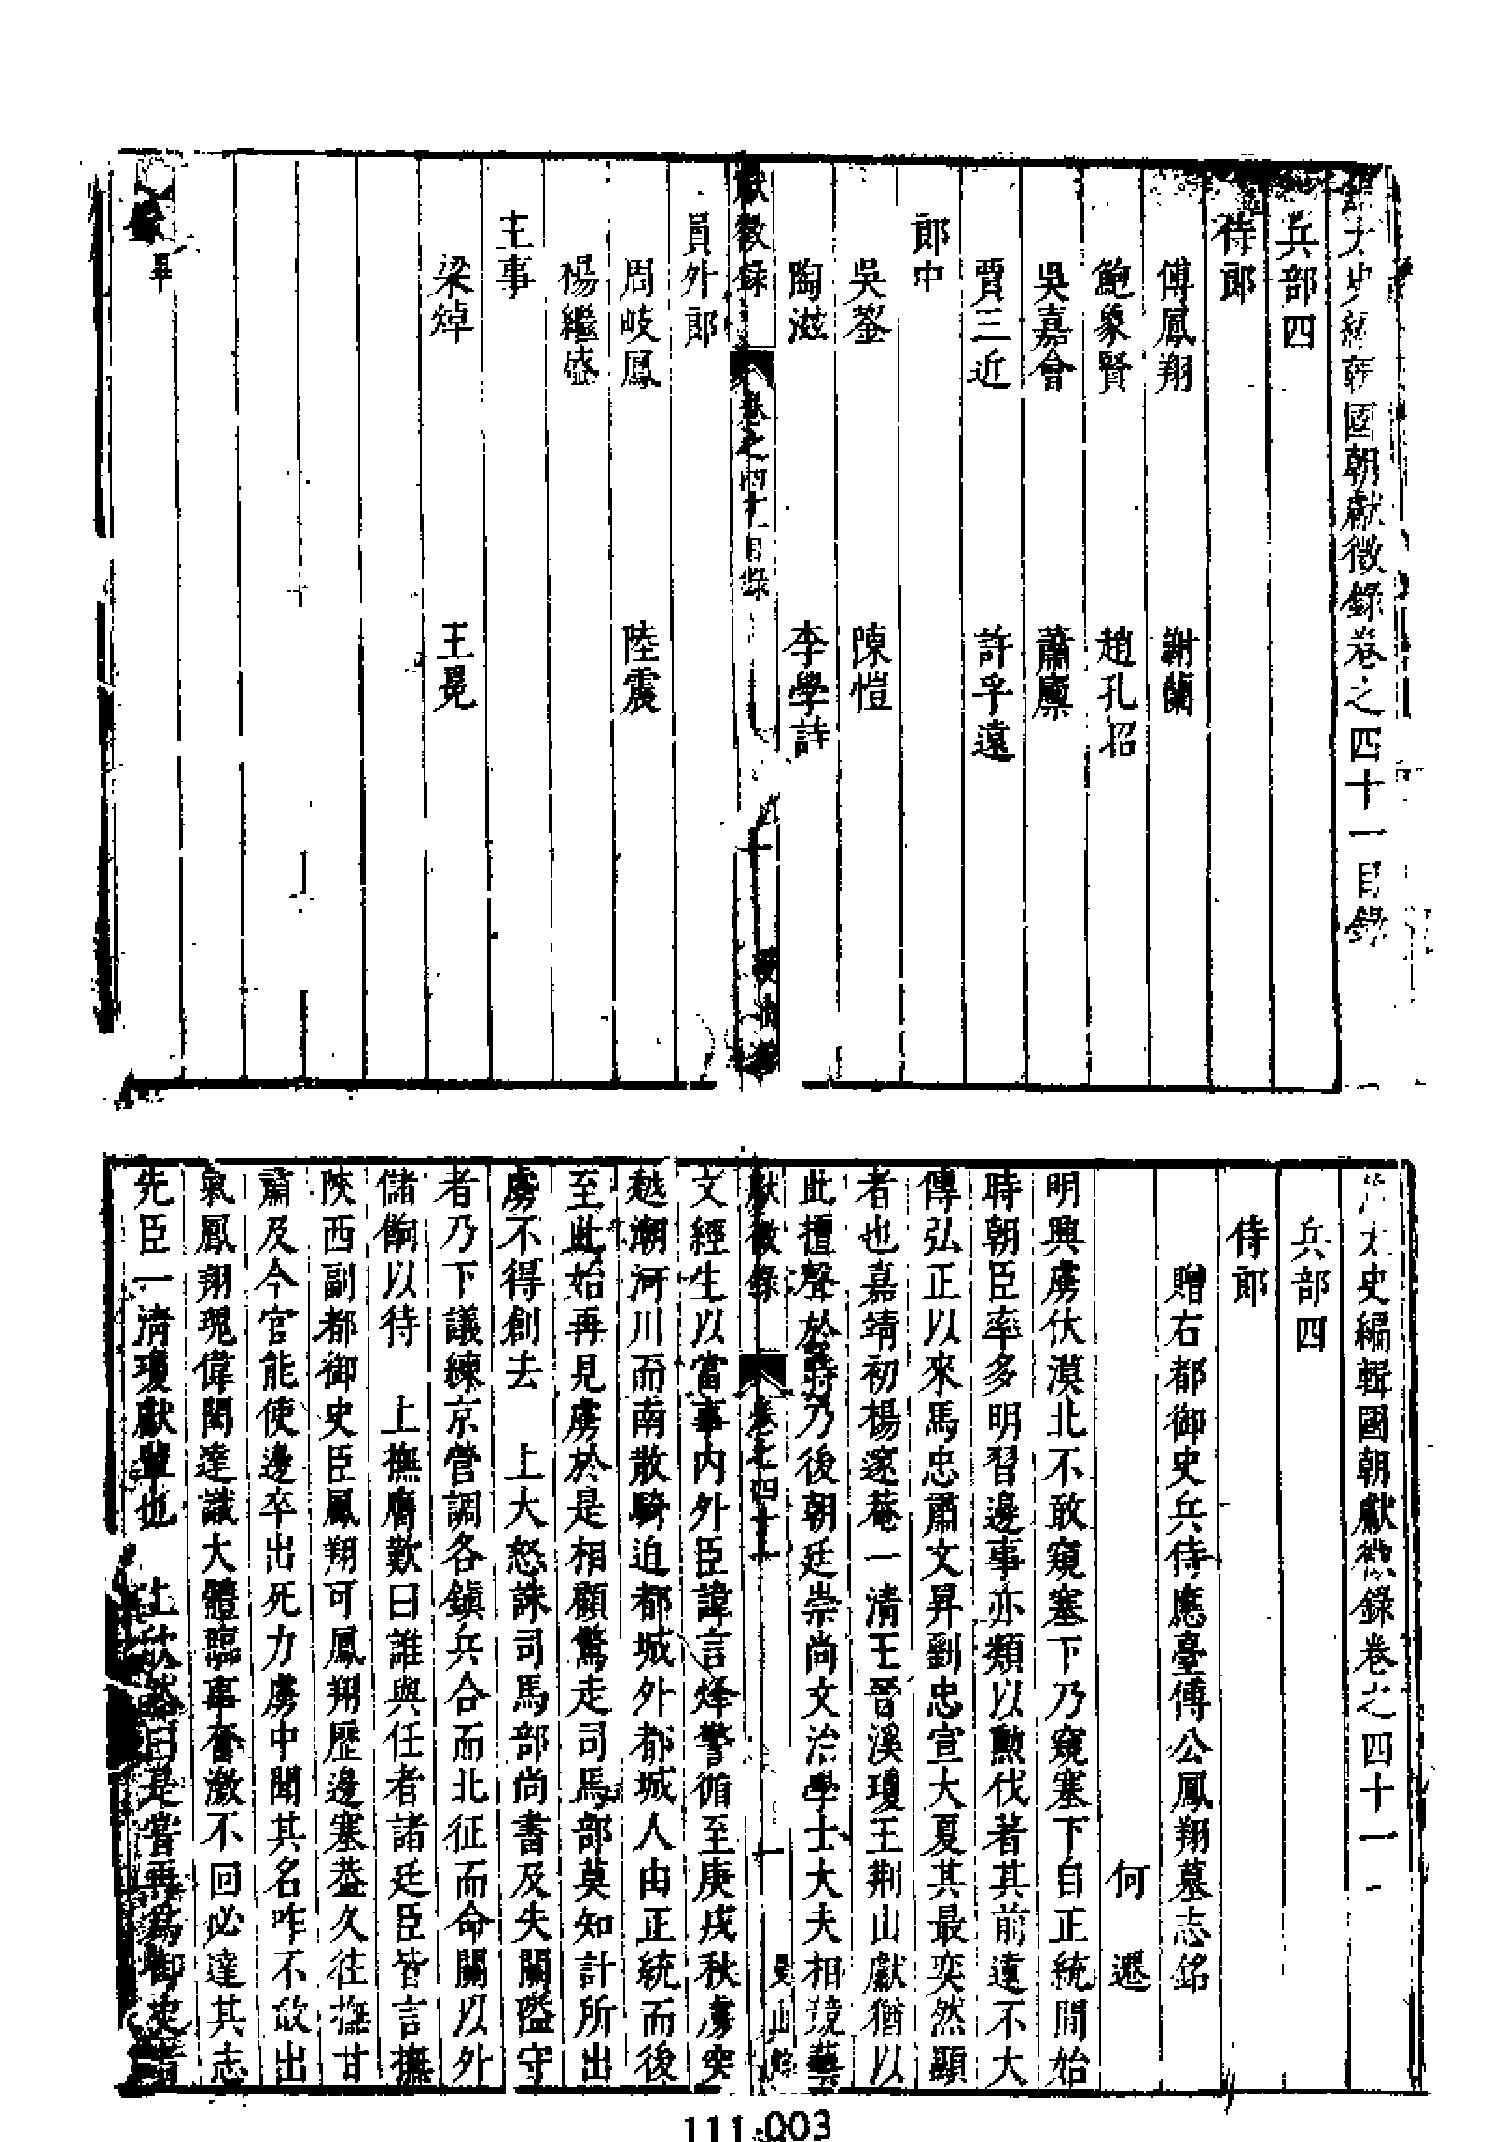 太史編輯國朝獻徵錄卷之四十一目錄
兵部四
侍郎
傅鳳翔　謝蘭
鮑象賢　趙孔昭
吳嘉會　蕭廩
賈三近　許孚遠
郎中
吳鋆　陳愷
陶滋　李學詩
獻徵錄　卷之四十一目錄
員外郎
周岐鳳　陸震
楊繼盛
主事
梁焯　王冕
太史編輯國朝獻徵錄卷之四十一
兵部四
侍郎
贈右都御史兵侍應臺傅公鳳翔墓志銘
何遷
明興虜伏漠北不敢窺塞下乃窺塞下自正統間始
時朝臣率多明習邊事亦類以勲伐著其前遠不大
傳弘正以來馬忠肅文昇劉忠宣大夏其最奕然顯
者也嘉靖初楊邃菴一清王晉溪瓊王荊山獻猶以
此擅聲於時乃後朝廷崇尚文治學士大夫相競藝
獻徵錄　卷之四十一　一
文經生以當事内外臣諱言烽警循至庚戌秋虜突
越潮河川而南散騎迫都城外都城人由正統而後
至此始再見虜於是相顧驚走司馬部莫知計所出
虜不得創去　上大怒誅司馬部尚書及失關隘守
者乃下議練京營調各鎮兵合而北征而命關以外
儲餉以待　上撫膺歎曰誰與任者諸廷臣皆言撫
陜西副都御史臣鳳翔可鳳翔歷邊塞葢久往撫甘
肅及今官能使邊卒出死力虜中聞其名咋不敢出
氣鳳翔瑰偉閎達識大體臨事奮激不回必達其志
先臣一清瓊獻輩也　上欣然曰是嘗再為御史
111.003